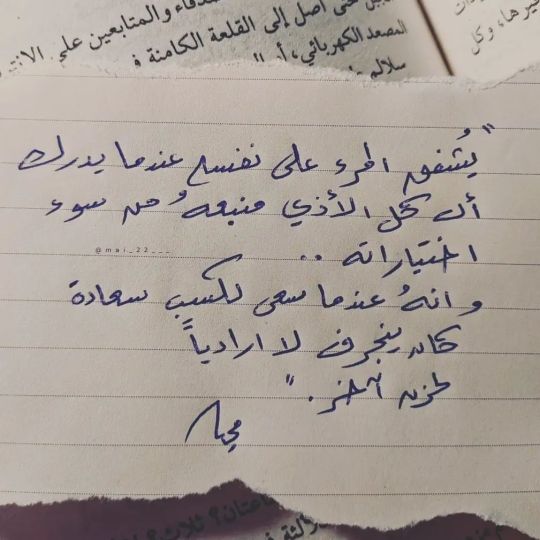 دقاء والمتابعين على الانت
حتى أصل إلى القلعة الكامنة
المصعد الكهربائي، أ
سلالم
يرها، وكل
"يُشفق المرء على نفسه عندما يدرك
أن كل الأذي منبعهُ من سوء
@mai_22___
اختياراته ..
وانهُ عندما سعى لكسب سعادة
كان ينجرف لا ارادياً
لحزن آخر."
ثلاث؟